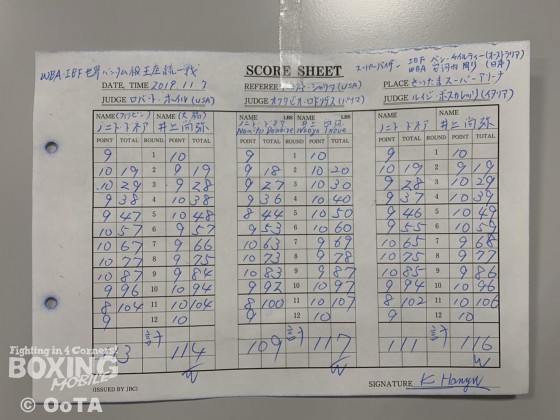 WBA・IBF 世界バンタム級王座統一戦
SCORE SHEET
スーパーバイザー IBF ベン・ケイルティー(オーストラリア)
WBA 安河内 剛 (日本)
DATE, TIME 2019.11.7
REFEREE
(USA)
PLACE さいたまスーパーアリーナ
JUDGE ロバート・ホイル(USA)
JUDGE オクタビオ・ロドリゲス(パナマ)
JUDGE ルイジ・ボスカレリ(イタリア)
NAME(フィリピン) NAME(大橋) NAME LBS NAME LBS NAME NAME
ノニト・ドネア 井上尚弥 Nonito Donaire Naoya Inoue ノニト・ドネア 井上尚弥
POINT TOTAL ROUND POINT TOTAL POINT TOTAL ROUND POINT TOTAL POINT TOTAL ROUND POINT TOTAL
9 1 10 9 1 10 9 1 10
10 19 2 9 19 9 18 2 10 20 10 19 2 9 19
10 29 3 9 28 9 27 3 10 30 9 28 3 10 29
9 38 4 10 38 9 36 4 10 40 9 37 4 10 39
9 47 5 10 48 8 44 5 10 50 9 46 5 10 49
10 57 6 9 57 9 53 6 10 60 9 55 6 10 59
10 67 7 9 66 10 63 7 9 69 10 65 7 9 68
10 77 8 9 75 10 73 8 9 78 10 75 8 9 77
10 87 9 9 84 10 83 9 9 87 10 85 9 9 86
9 96 10 10 94 9 92 10 10 97 9 94 10 10 96
8 104 11 10 104 8 100 11 10 107 8 102 11 10 106
9 12 10 9 12 10 9 12 10
計 114 109 計 117 111 計 116
W W W
Fighting in 4 Corners!
BOXING
MOBILE
(ISSUED BY JBC)
SIGNATURE
© OoTA